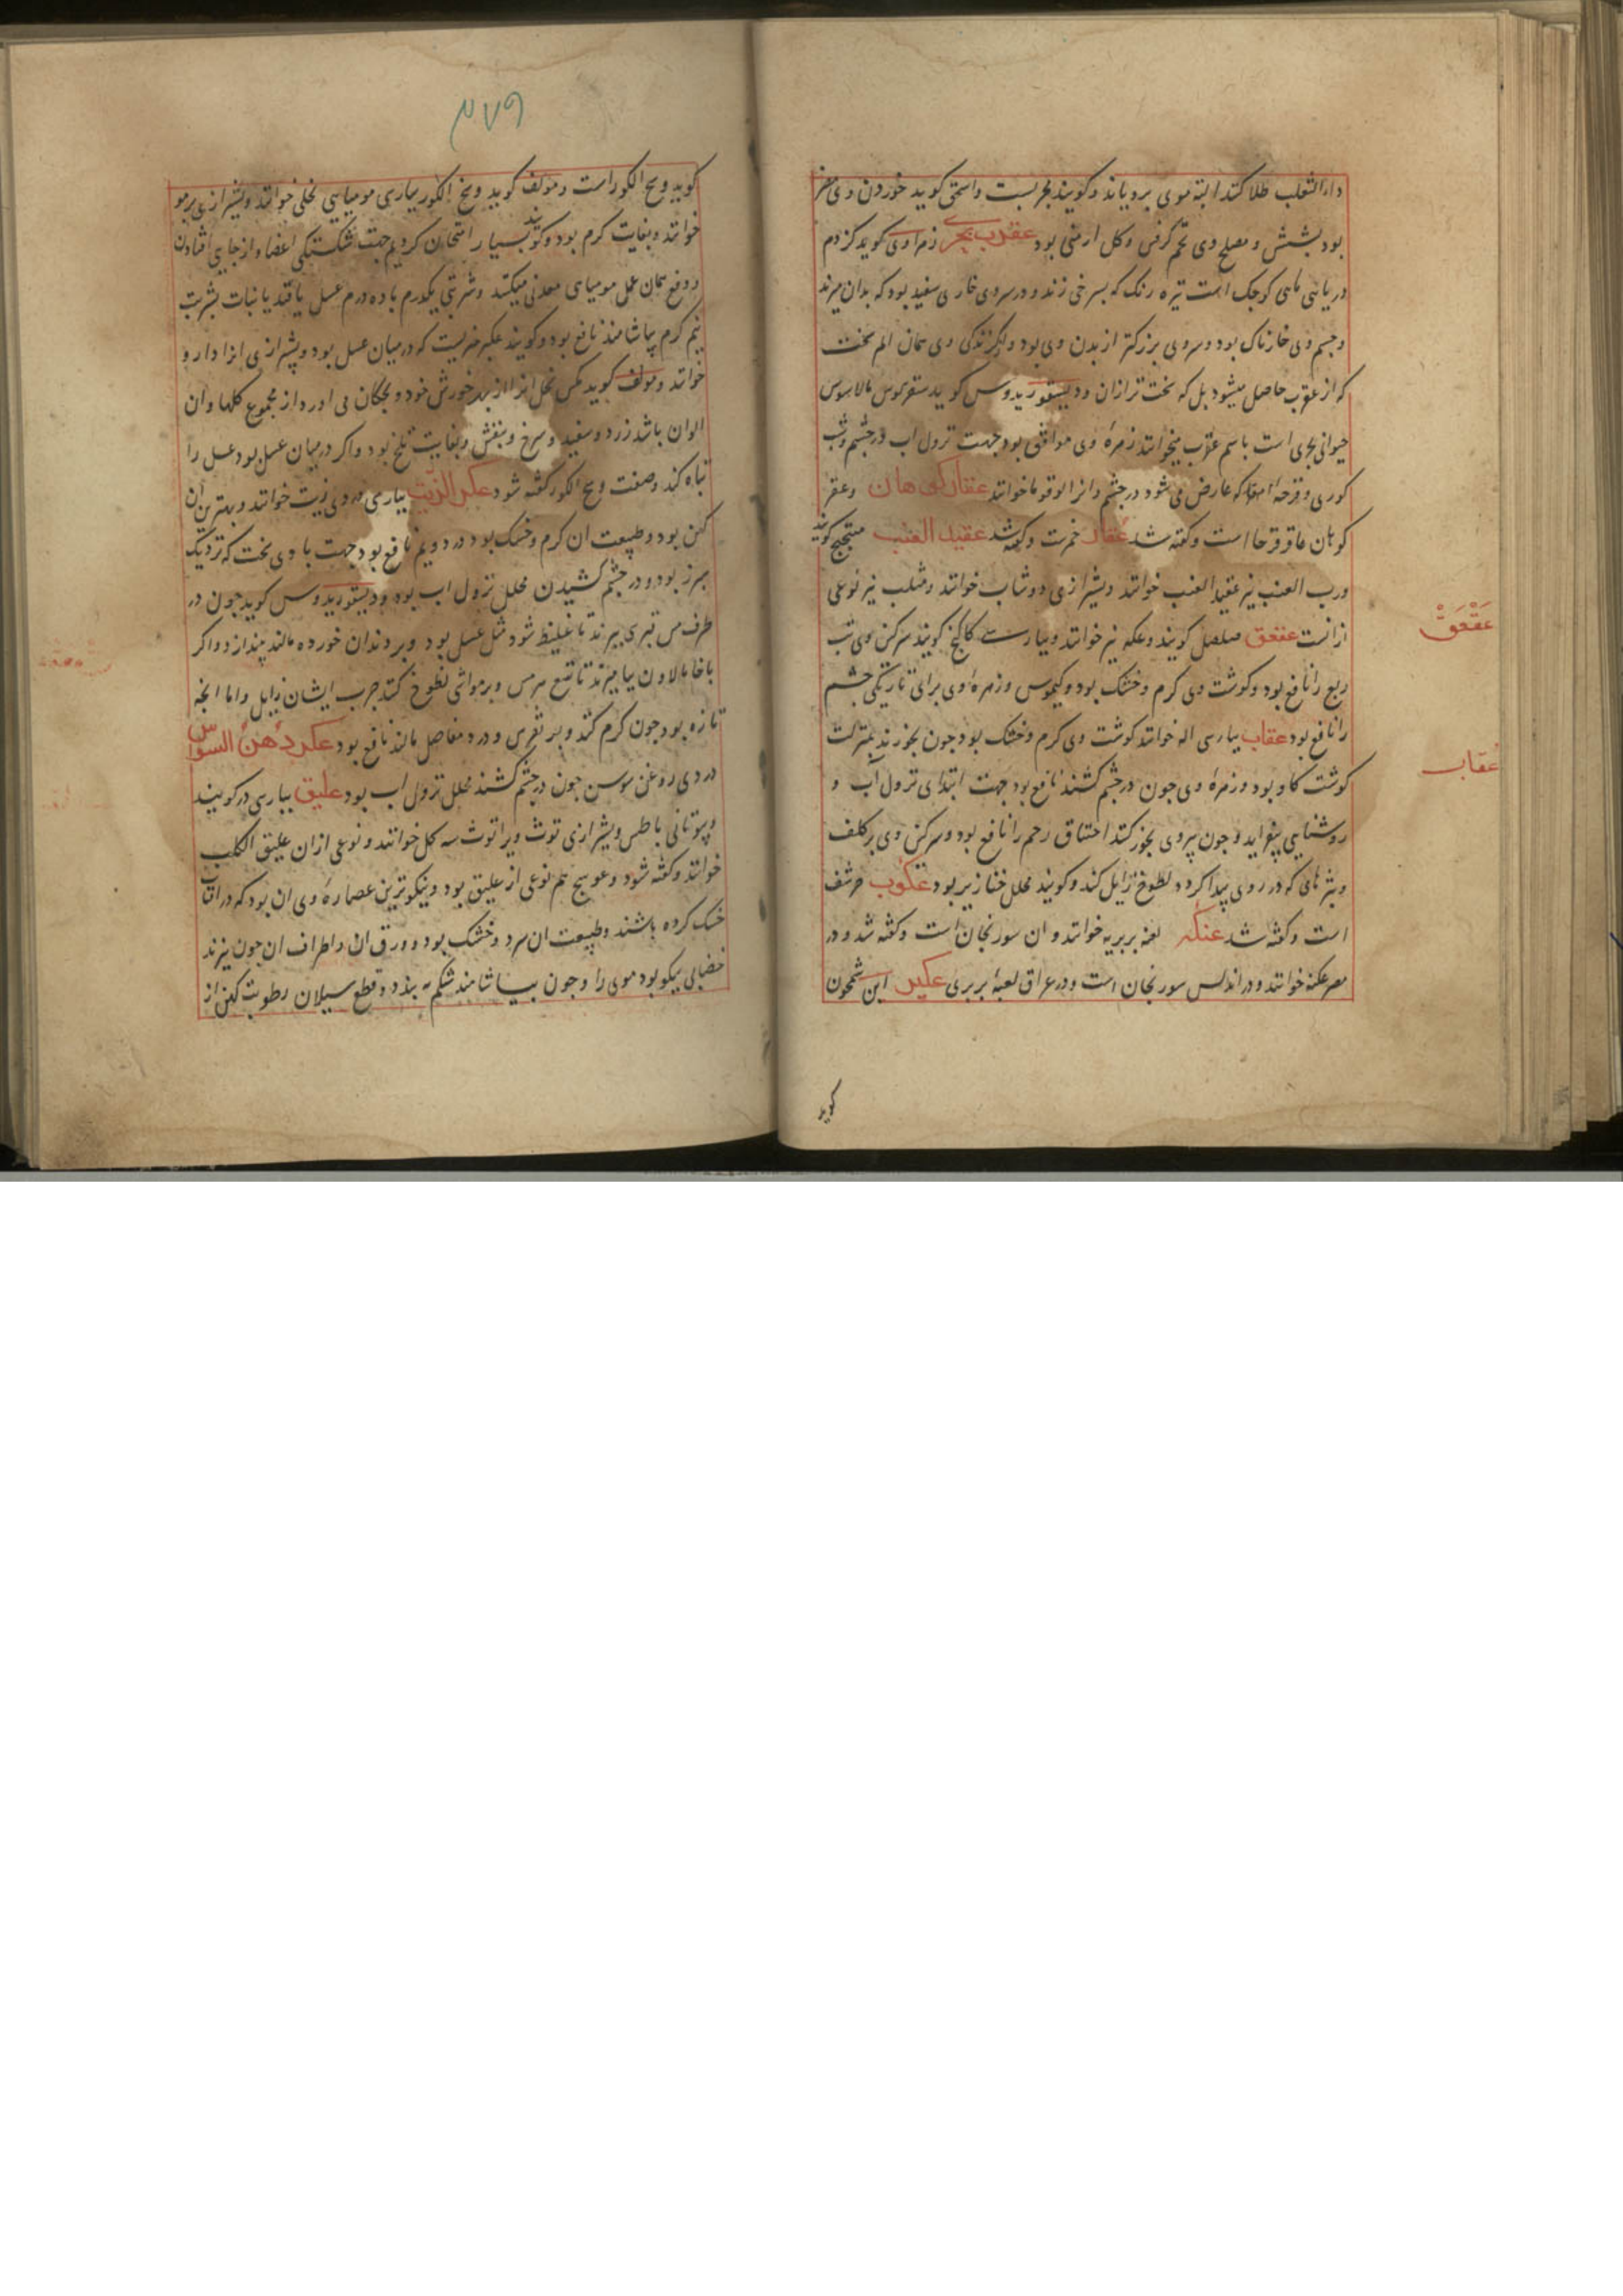 داء الثعلب طلا کنند البته موی برویاند و کویند مجربست و اسحق کوید خوردن وی مضر
بود بشش و مصلح وی تخم کرفس و کل ارمنی بود عقرب بحری زهراوی کوید کژدم
دریائی ماهی کوچک است تیره رنک که بسرخی زند و در سر وی خاری سفید بود که بدان میزند
و جسم وی خارناک بود و سر وی بزرکتر از بدن وی بود و از کزندکی وی همان الم سخت
که از عقرب حاصل میشود بل که سخت تر ازان و دیسقوریدوس کوید
حیوانی بحری است باسم عقرب میخوانند زهرهٔ وی موافق بود جهت نزول اب در چشم و شب
کوری و قرحهٔ که عارض می شود در چشم و انرا لوقوما خوانند عقار کوهان و عقر
کوهان عاقرقرحا است و کفته شد عقار خمرست و کفته شد عقید العنب میبختج کویند
و رب العنب نیز عقید العنب خوانند و بشیرازی دوشاب خوانند و مثلب نیز نوعی
ازانست عقعق صلصل کویند و عکه نیز خوانند و بپارسی کویند سرکین وی تب
ربع را نافع بود و کوشت وی کرم و خشک بود و کیموس و زهرهٔ وی برای تاریکی چشم
را نافع بود عقاب بپارسی اله خوانند کوشت وی کرم و خشک بود چون بخورند بمنزلت
کوشت کاو بود و زهرهٔ وی چون در چشم کشند نافع بود جهت ابتدای نزول آب و
روشنایی بیفزاید و چون بپر وی بخور کنند اختناق رحم را نافع بود و سرکین وی بر کلف
و بثرهای که در روی پیدا کردد لطوخ زایل کند و کویند محلل خنازیر بود عکوب حرشف
است و کفته شد عنکه لعبه بربریه خوانند و ان سورنجان است و کفته شد و در
مصر عکنه خوانند و در اندلس سورنجان است و در عراق لعبهٔ بربری عکبر ابن شمحون
عَقْعَقْ
عُقاب
کوید
۴۷۹
کوید وسخ الکور است و مولف کوید وسخ الکور بپارسی مومیایی نحلی خوانند و بشیرازی برمو
خوانند و بغایت کرم بود و کویند بسیار امتحان کردیم جهت شکستکی اعضا و از جایی افتادن
و وثی همان عمل مومیای معدنی میکند و شربتی یکدرم با ده درم عسل یا قند یا نبات بشربت
نیم کرم بیاشامند نافع بود و کویند عکبر چیزیست که در میان عسل بود و بشیرازی انرا دارو
خوانند و مولف کوید مکس نحل انرا از بهر خورش خود و بچکان می اورد از مجموع کلها و ان
الوان باشد زرد و سفید و سرخ و بنفش و بغایت تلخ بود و اکر در میان عسل بود عسل را
تباه کند و صفت وسخ الکور کفته شود عکر الزیت بپارسی دردی زیت خوانند و بهترین ان
کهن بود و طبیعت ان کرم و خشک بود در دویم نافع بود جهت با وی سخت که نزدیک
و در چشم کشیدن محلل نزول اب بود و دیسقوریدوس کوید چون در
ظرف مس قبرسی بپزند تا غلیظ شود مثل عسل بود و بر دندان خورده مالند بیندازد و اکر
با خامالاون بیامیزند و بر مواشی لطوخ کنند جرب ایشان زایل و اما انچه
تازه بود چون کرم کنند و بر نقرس و درد مفاصل مالند نافع بود عکر دُهن السوسن
دردی روغن سوسن چون در چشم کشند محلل نزول اب بود علیق بپارسی در کویند
و یونانی باطس و بشیرازی توث و یرا توث سه کل خوانند و نوعی ازان علیق الکلب
خوانند و کفته شود و عوسج هم نوعی از علیق بود و نیکوترین عصارهٔ وی ان بود که در آفتاب
خشک کرده باشند و طبیعت ان سرد و خشک بود و ورق ان و اطراف ان چون بپزند
خضابی نیکو بود موی را و چون بیاشامند شکم به بندد و قطع سیلان رطوبت کهن از